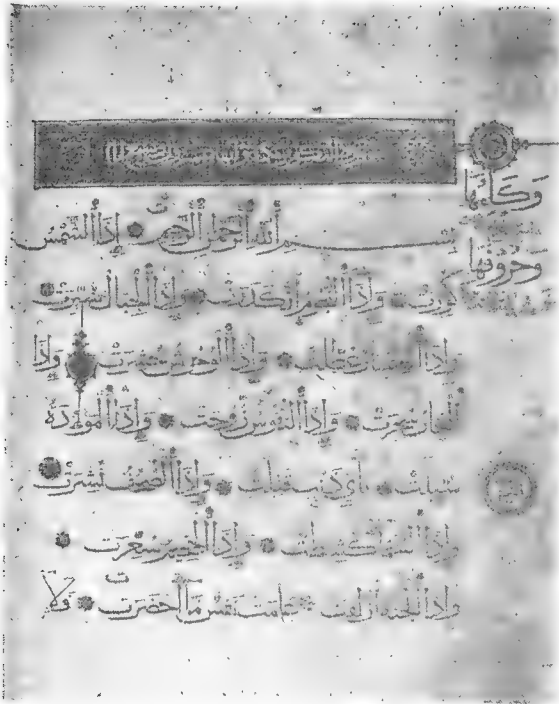 وكلماتها
وحروفها
بسم الله الرحمن الرحيم إذا الشمس
كورت وإذا النجوم انكدرت وإذا الجبال سيرت
وإذا العشار عطلت وإذا الوحوش حشرت وإذا
البحار سجرت وإذا النفوس زوجت وإذا الموءدة
سئلت بأي ذنب قتلت وإذا الصحف نشرت
وإذا السماء كشطت وإذا الجحيم سعرت
وإذا الجنة أزلفت علمت نفس ما أحضرت فلا